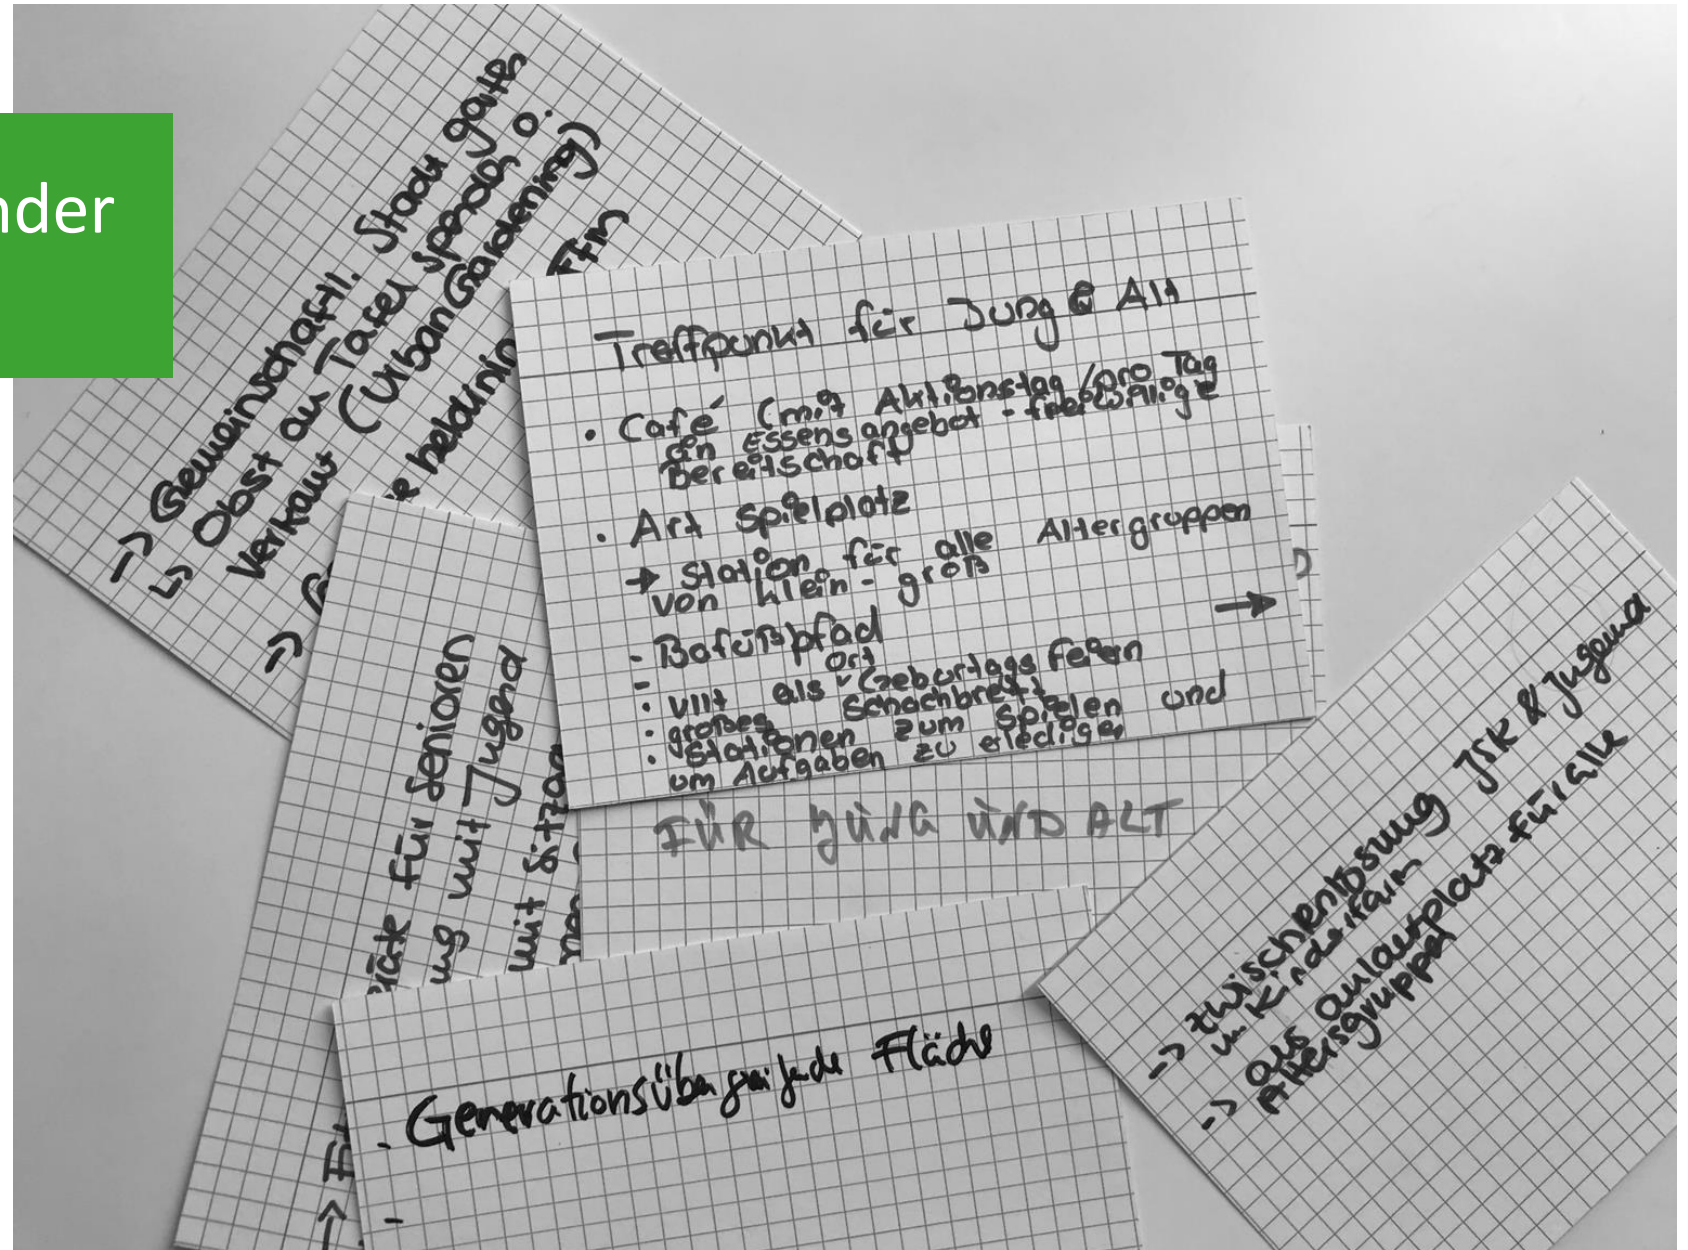 nder
-> Gemeinschaftl. Stadt garten
↳ Obst an Tafel spenden o.
Verkauf (Urban Gardening)
-> heldinnen Ffm
Treffpunkt für Jung & Alt
• Café (mit Aktionstag/pro Tag
ein Essensangebot - freiwillige
Bereitschaft
• Art Spielplatz
→ Station für alle Altergruppen
von klein - groß
- Bafüßpfad
-
• vllt als Ort Geburtags feiern
• großes Schachbrett
• Stationen zum spielen und
um Aufgaben zu erledigen
→
FÜR JUNG UND ALT
für Senioren
ung mit Jugend
mit Sitzan
- Generationsübergreifende Fläche
-
-> zwischenlösung JSK & Jugend
im Kinderfarm
-> als anlaufplatz für alle
Altersgruppen